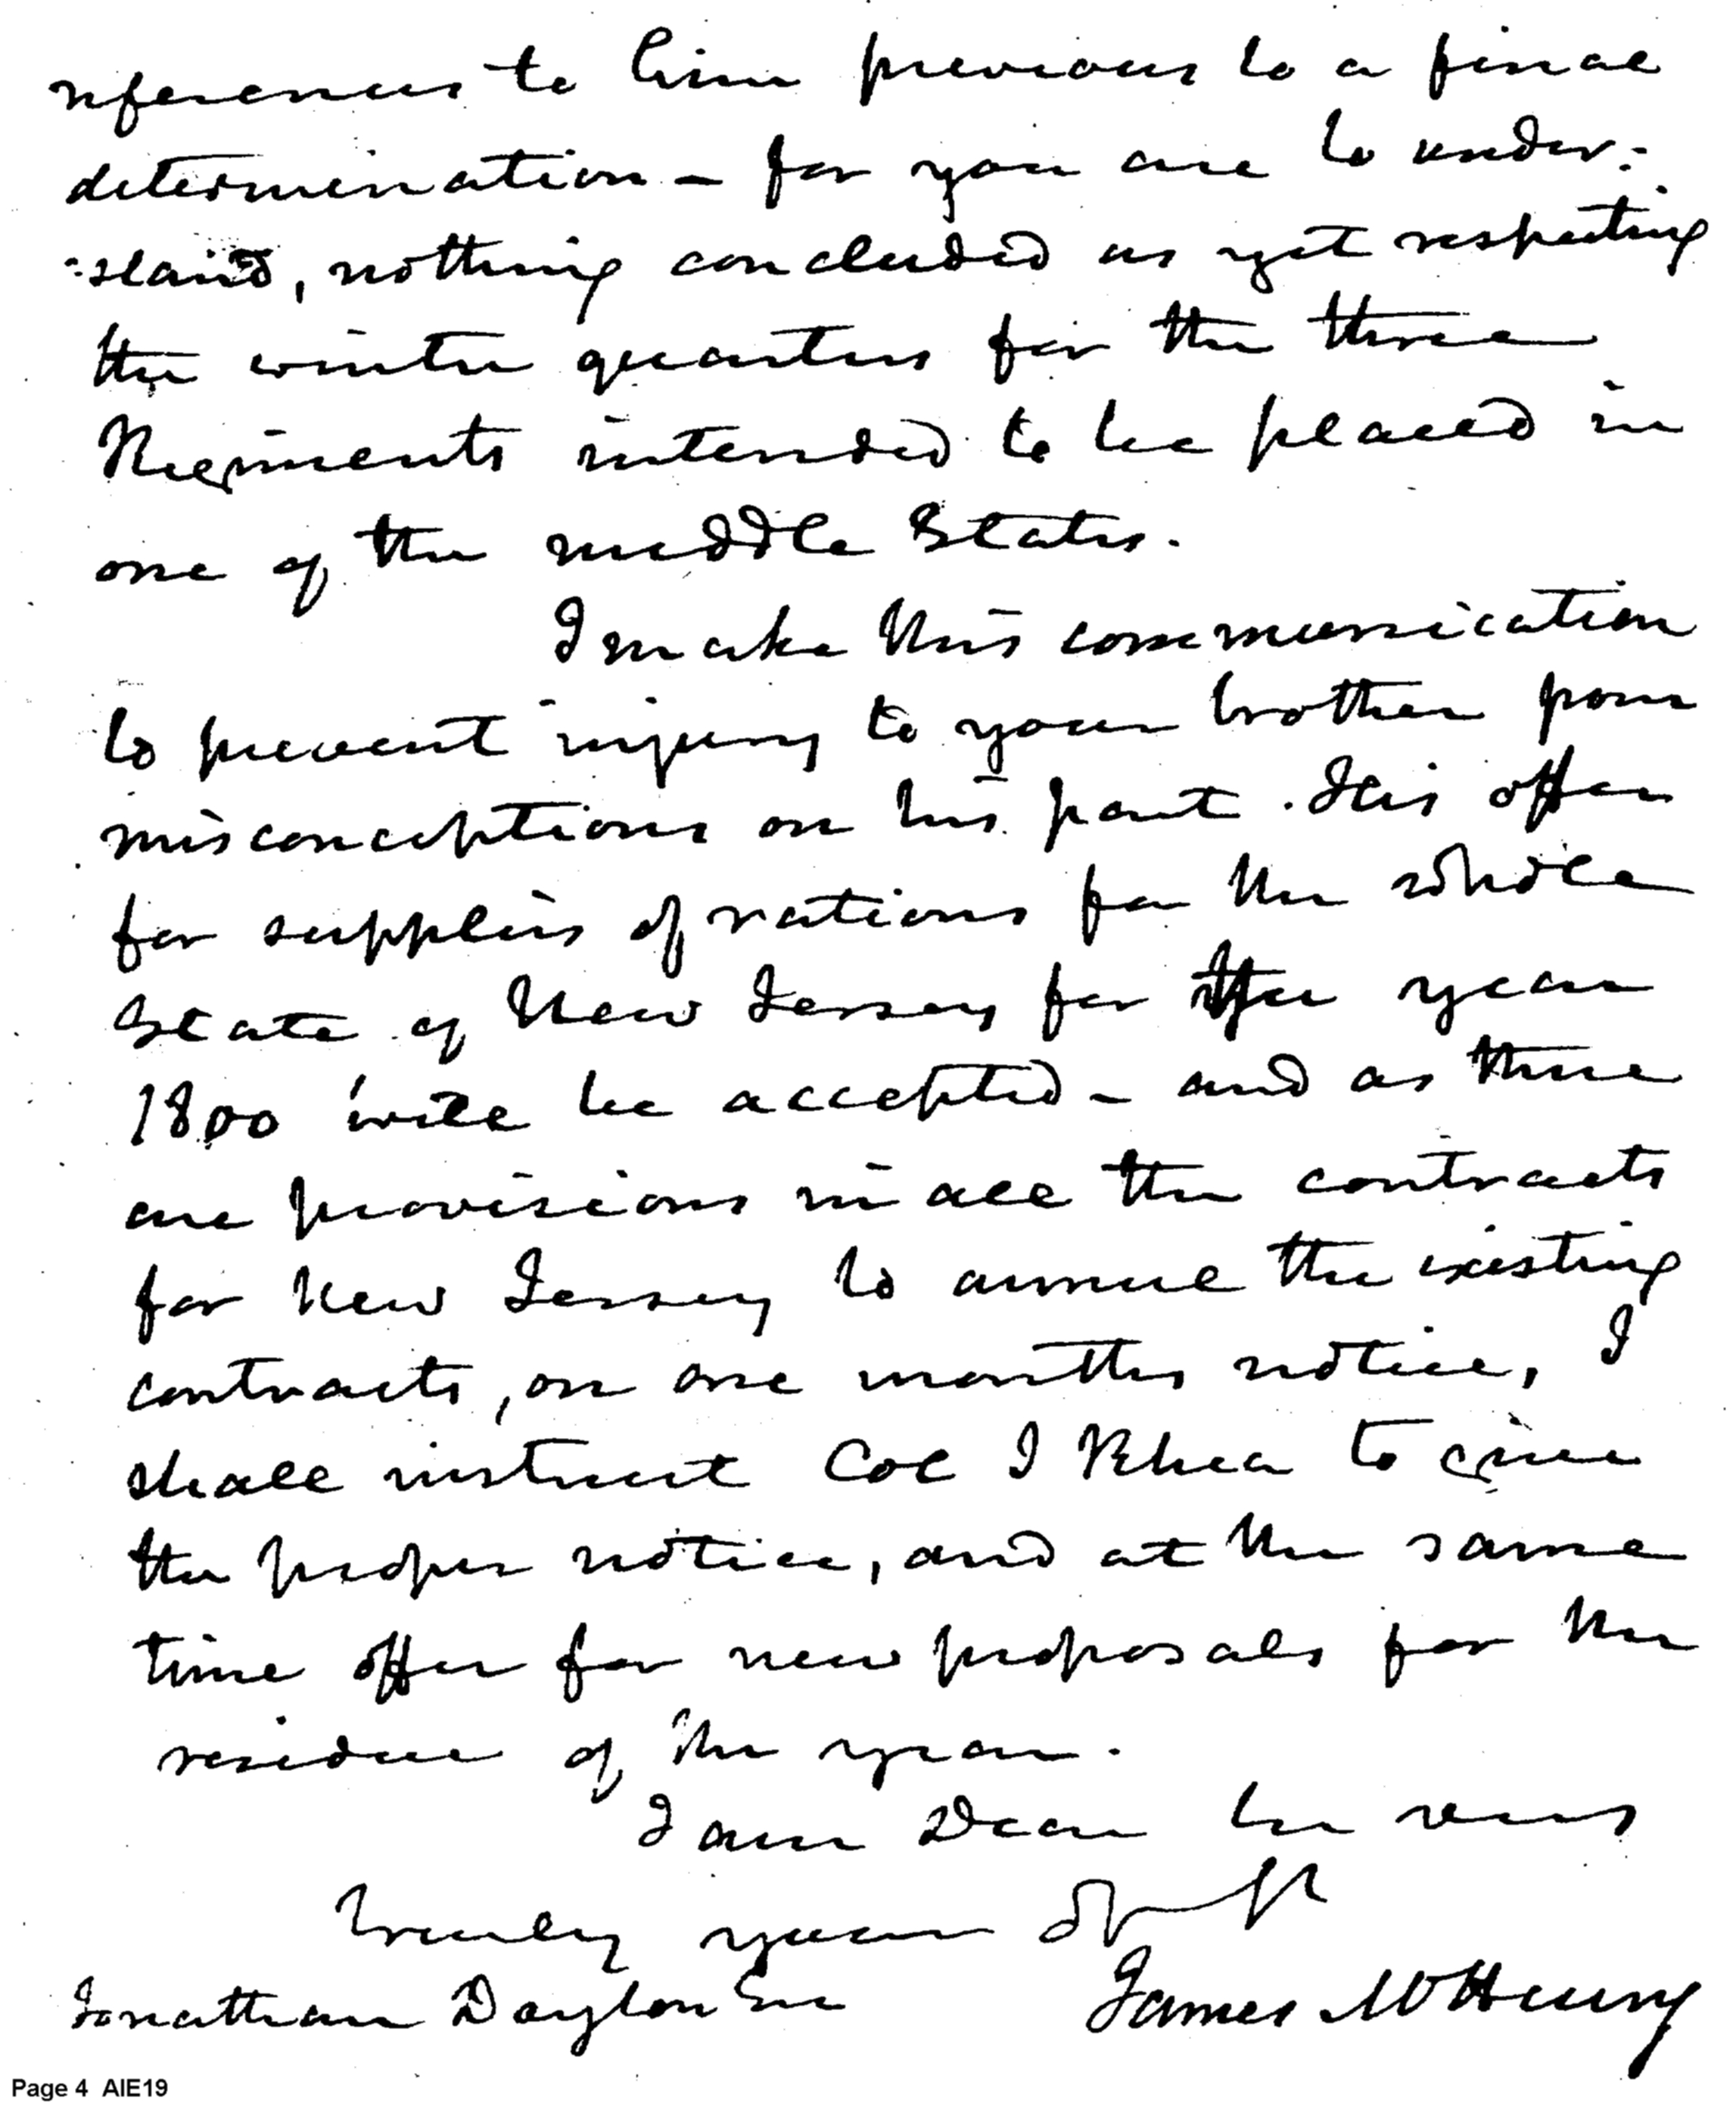 references to him previous to a final
determination – for you are to under:
:stand, nothing concluded as yet respecting
the winter quarters for the three
Regiments intended to be placed in
one of the middle States.
I make this communication
to prevent injury to your brother from
misconceptions on his part. His offer
for supplies of rations for the whole
State of New Jersey for the year
1800 will be accepted – and as there
are provisions in all the contracts
for New Jersey to annul the existing
contracts, on one months notice, I
shall instruct Col I Rhea to give
the proper notice, and at the same
time offer for new proposals for the
residue of the year.
I am Dear Sir very
truly your
Jonathan Dayton Esq James McHenry
Page 4 AIE19